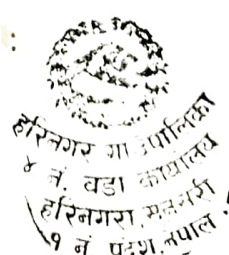 हरिनगर गाउँपालिका
४ नं. वडा कार्यालय
हरिनगरा, सुनसरी
१ नं प्रदेश, नेपाल